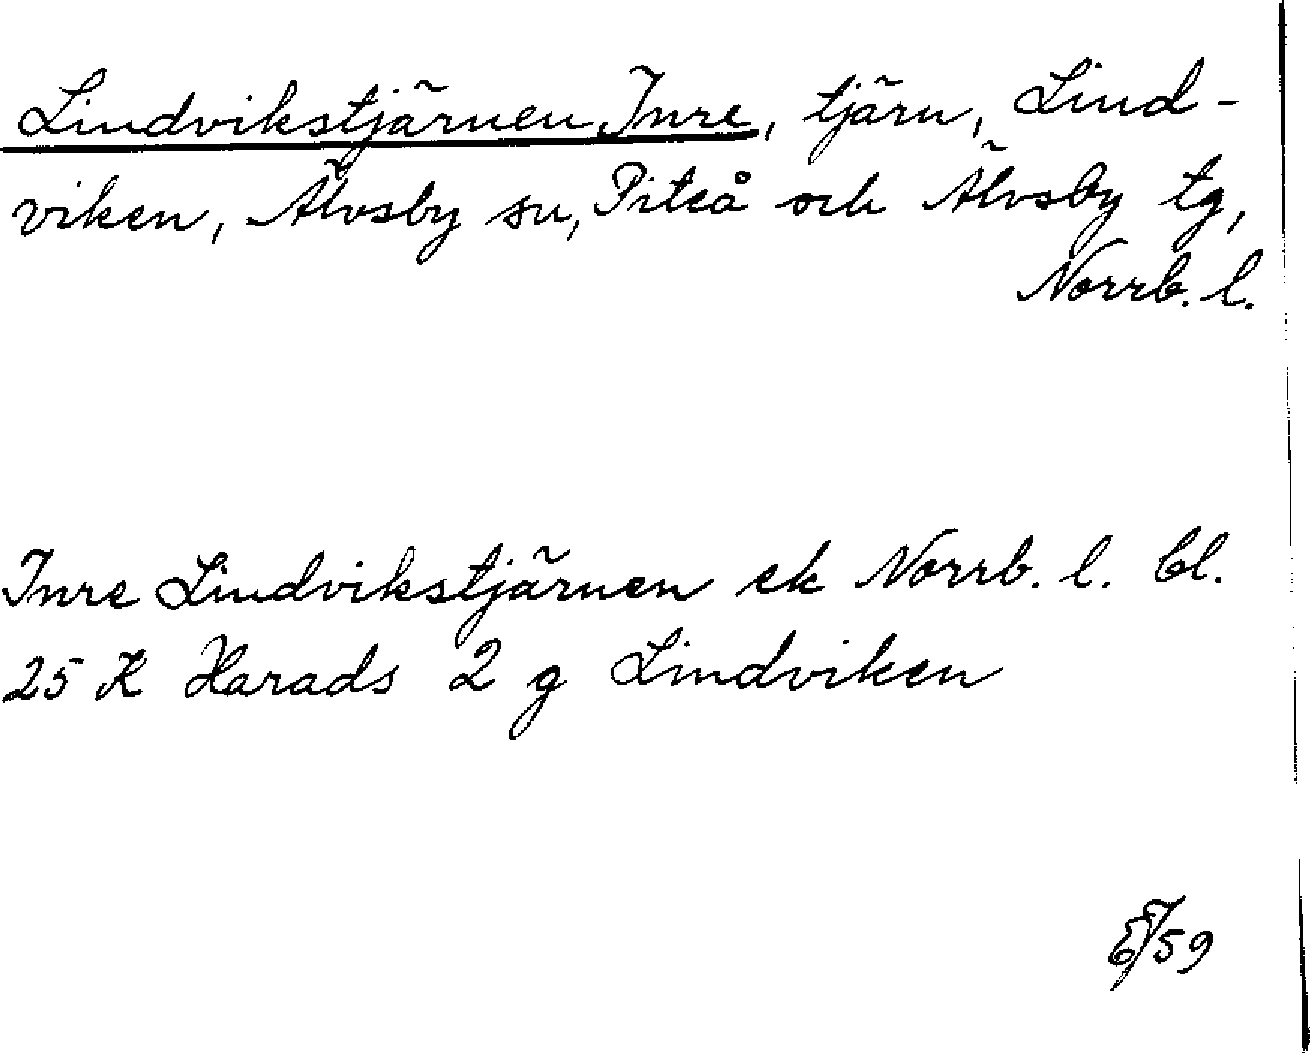 Lindvikstjärnen, Inre, tjärn, Lind-
viken, Älvsby sn, Piteå och Älvsby tg,
Norrb. l.
Inre Lindvikstjärnen ek Norrb. l. bl.
25 K Harads 2 g Lindviken
59